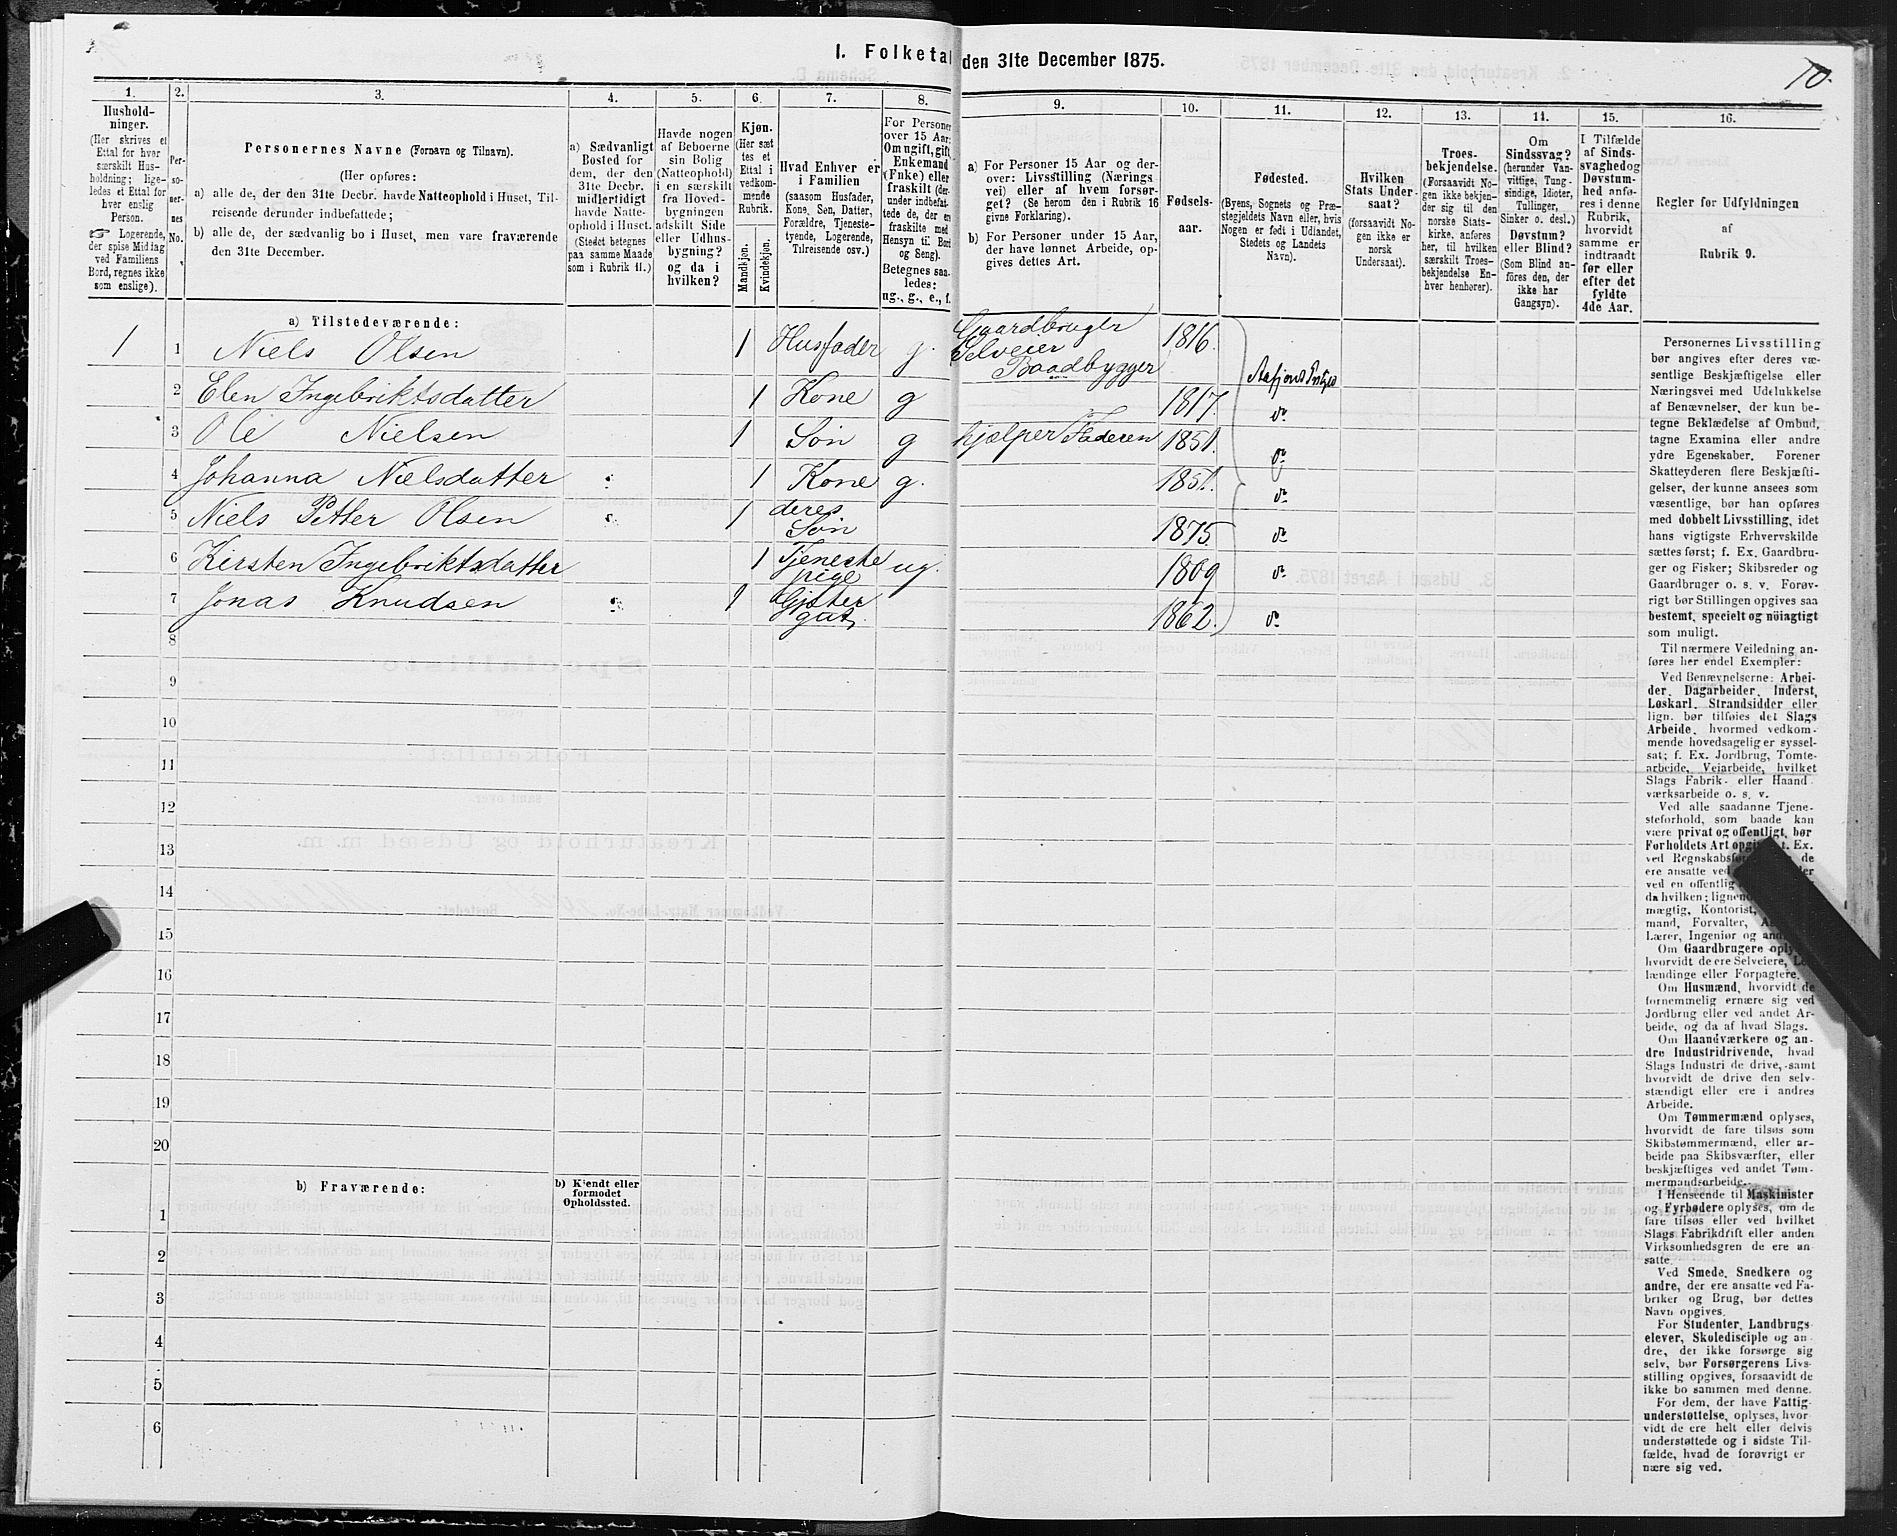 I. Folketal den 31te December 1875.
70.
1.
2.
3.
4.
5.
6.
7.
8.
9.
10.
11.
12.
13.
14.
15.
16.
Hushold-
ninger.
(Her skrives et
Ettal for hver
særskilt Hus-
holdning; lige-
ledes et Ettal for
hver enslig
Person.
☞ Logerende,
der spise Middag
ved Familiens
Bord, regnes ikke
som enslige).
Per-
so-
ner-
nes
No.
Personernes Navne (Fornavn og Tilnavn).
(Her opføres:
a) alle de, der den 31te Decbr. havde Natteophold i Huset, Til-
reisende derunder indbefattede;
b) alle de, der sædvanlig bo i Huset, men vare fraværende
den 31te December.
a) Sædvanligt
Bosted for
dem, der den
31te Decbr.
midlertidigt
havde Natte-
ophold i Huset.
(Stedet betegnes
paa samme Maade
som i Rubrik 11.)
Havde nogen
af Beboerne
sin Bolig
(Natteophold)
i en særskilt
fra Hoved-
bygningen
adskilt Side
eller Udhus-
bygning?
og da i
hvilken?
Kjøn.
(Her sæt
tes et
Ettal i
vedkom-
mende
Rubrik.
Mandkjøn.
Kvindekjøn.
Hvad Enhver er
i Familien
(saasom Husfader,
Kone, Søn, Datter,
Forældre, Tjeneste-
tyende, Logerende,
Tilreisende osv.)
For Personer
over 15 Aar:
Om ugift, gift,
Enkemand
(Enke) eller
fraskilt (der-
under indbefat-
tede de, der er
fraskilte med
Hensyn til Bord
og Seng).
Betegnes saa-
ledes:
ug., g., e., f.
a) For Personer 15 Aar og der-
over: Livsstilling (Nærings
vei) eller af hvem forsør-
get? (Se herom den i Rubrik 16
givne Forklaring).
b) For Personer under 15 Aar,
der have lønnet Arbeide, op-
gives dettes Art.
Fødsels-
aar.
Fødested.
(Byens, Sognets og Præ-
stegjeldets Navn eller, hvis
Nogen er født i Udlandet,
Stedets og Landets
Navn).
Hvilken
Stats Under-
saat?
(forsaavidt No-
gen ikke er
norsk
Undersaat).
Troes-
bekjendelse.
(Forsaavidt No-
gen ikke bekjen-
der sig til den
norske Stats-
kirke, anføres
her, til hvilken
særskilt Troes-
bekjendelse En-
hver henhører).
Om
Sindssvag?
(herunder Van-
vittige, Tung-
sindige, Idioter,
Tullinger,
Sinker o. desl.)
Døvstum?
eller Blind?
(Som Blind an-
føres den, der
ikke har
Gangsyn).
I Tilfælde
af Sinds-
svaghed og
Døvstum-
hed anfø-
res i denne
Rubrik,
hvorvidt
samme er
indtraadt
før eller
efter det
fyldte
4de Aar.
Regler for Udfyldningen
af
Rubrik 9.
a) Tilstedeværende:
1 1 Niels Olsen 1 Husfader g. Gaardbruger Selveier Baadbygger 1816. Aafjord
2 Elen Ingebriktsdatter 1 Kone g 1817. do
3 Ole Nielsen 1 Søn g hjælper Faderen 1851. do
4 Johanna Nielsdatter 1 Kone g. 1851. do
5 Niels Petter Olsen 1 deres Søn 1875 do
6 Kirsten Ingebriktsdatter 1 Tjeneste pige ug. 1809 do
7 Jonas Knudsen 1 1862. do
8
9
10
11
12
13
14
15
16
17
18
19
20
b) Fraværende:
b) Kjendt eller
formodet
Opholdssted.
1
2
3
4
5
6
Personernes Livsstilling
bør angives efter deres væ-
sentlige Beskjæftigelse eller
Næringsvei med Udelukkelse
af Benævnelser, der kun be-
tegne Beklædelse af Ombud,
tagne Examina eller andre
ydre Egenskaber. Forener
Skatteyderen flere Beskjæfti-
gelser, der kunne ansees som
væsentlige, bør han opføres
med dobbelt Livsstilling, idet
hans vigtigste Erhvervskilde
sættes først; f. Ex. Gaardbru-
ger og Fisker; Skibsreder og
Gaardbruger o. s. v. Forøv-
rigt bør Stillingen opgives saa
bestemt, specielt og nöiagtigt
som muligt.
Til nærmere Veiledning an-
føres her endel Exempler:
Ved Benævnelserne: Arbei-
der, Dagarbeider, Inderst,
Løskarl, Strandsidder eller
lign. bør tilføies det Slags
Arbeide, hvormed vedkom-
mende hovedsagelig er syssel-
sat; f. Ex. Jordbrug, Tomte-
arbeide, Veiarbeide, hvilket
Slags Fabrik- eller Haand
værksarbeide o. s. v.
Ved alle saadanne Tjene-
steforhold, som baade kan
være privat og offentligt, bør
Forholdets Art t. Ex.
ved de
ere ansatte ved
ved en offentlig
da hvilken;
mægtig, Kontorist,
mand, Forvalter,
Lærer, Ingeniør og
Om Gaardbrugere
hvorvidt de ere Selveiere,
lændinge eller Forpagtere.
Om Husmænd, hvorvidt de
fornemmelig ernære sig ved
Jordbrug eller ved andet Ar-
beide, og da af hvad Slags.
Om Haandværkere og an-
dre Industridrivende, hvad
Slags Industri de drive, samt
hvorvidt de drive den selv-
stændigt eller ere i andres
Arbeide.
Om Tømmermænd oplyses,
hvorvidt de fare tilsøs som
Skibstømmermænd, eller ar-
beide paa Skibsværfter, eller
beskjæftiges ved andet Tøm-
mermandsarbeide.
I Henseende til Maskinister
og Fyrbødere oplyses, om de
fare tilsøs eller ved hvilket
Slags Fabrikdrift eller anden
Virksomhedsgren de ere an-
satte.
Ved Smede, Snedkere og
andre, der ere ansatte ved Fa-
briker og Brug, bør dettes
Navn opgives.
For Studenter, Landbrugs-
elever, Skoledisciple og an-
dre, der ikke forsørge sig
selv, bør Forsørgerens Livs-
stilling opgives, forsaavidt de
ikke bo sammen med denne.
For dem, der have Fattig-
understøttelse, oplyses, hvor-
vidt de ere helt eller delvis
understøttede og i sidste Til-
fælde, hvad de forøvrigt er-
nære sig ved.